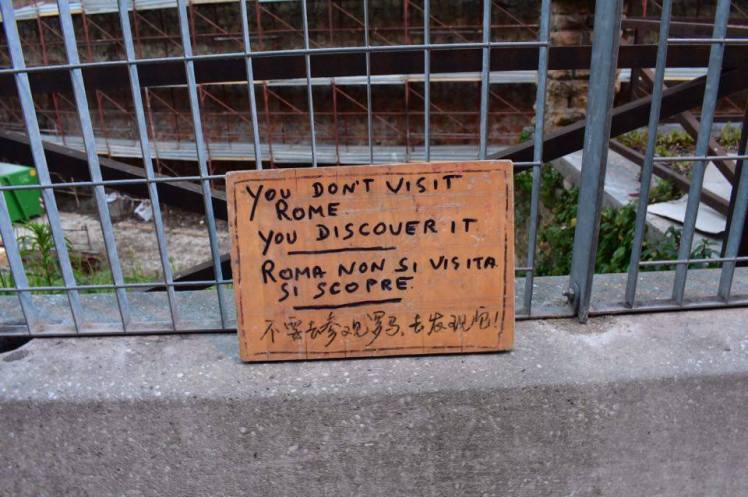 YOU DON'T VISIT
ROME
YOU DISCOVER IT
ROMA NON SI VISITA
SI SCOPRE
不要去参观罗马、去发现她!